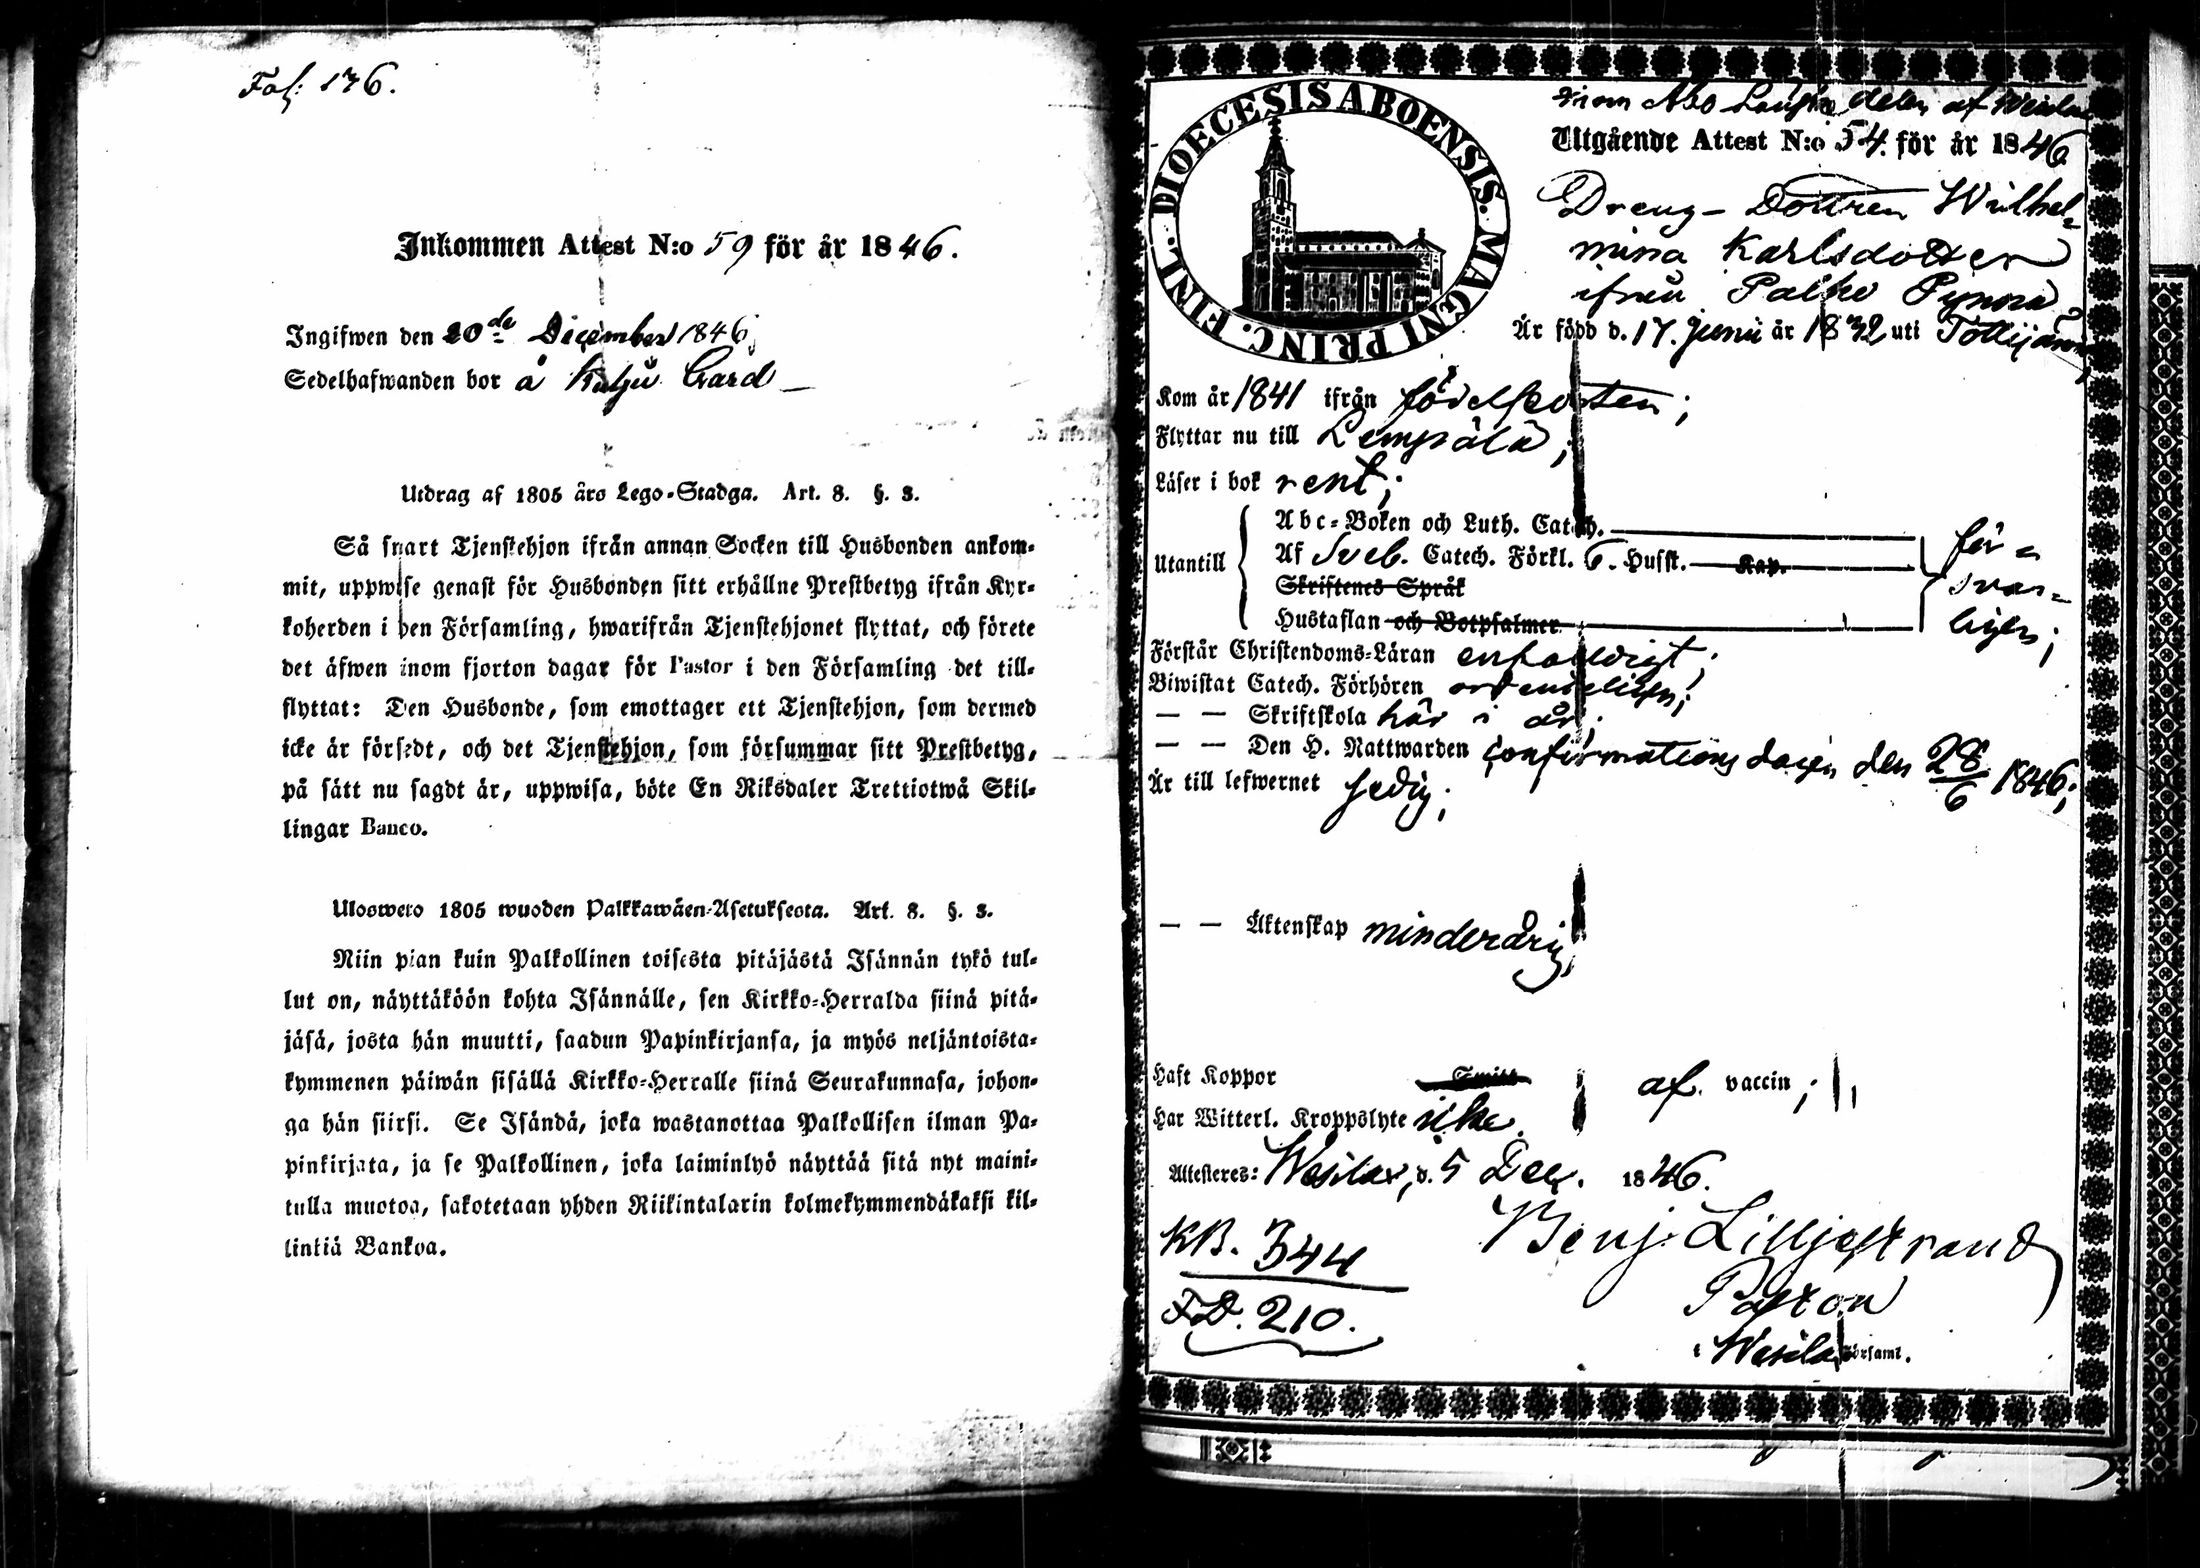 Fol: 176.
Inkommen Attest N:o 59 för år 1846.
Ingifwen den 20de December 1846
Sedelhafwanden bor å Kulju Gård
Utdrag af 1805 års Lego-Stadga. Art. 8. §. 3.
Så snart Tjenstehjon ifrån annan Socken till Husbonden ankom-
mit, uppwise genast för Husbonden sitt erhållne Prestbetyg ifrån Kyr-
koherden i den Församling, hwarifrån Tjenstehjonet flyttat, och förete
det äfwen inom fjorton dagar för Pastor i den Församling det till-
flyttat: Den Husbonde, som emottager ett Tjenstehjon, som dermed
icke är försedt, och det Tjenstehjon, som försummar sitt Prestbetyg,
på sätt nu sagdt är, uppwisa, böte En Riksdaler Trettiotwå Skil-
lingar Banco.
Ulosweto 1805 wuoden Palkkawäen-Asetuksesta. Art. 8. §. 3.
Niin pian kuin Palkollinen toisesta pitäjästä Isännän tykö tul-
lut on, näyttäköön kohta Isännälle, sen Kirkko-Herralda siinä pitä-
jäsä, josta hän muutti, saadun Papinkirjansa, ja myös neljäntoista-
kymmenen päiwän sisällä Kirkko-Herralle siinä Seurakunnasa, johon-
ga hän siirsi. Se Isändä, joka wastanottaa Palkollisen ilman Pa-
pinkirjata, ja se Palkollinen, joka laiminlyö näyttää sitä nyt maini-
tulla muotoa, sakotetaan yhden Riikintalarin kolmekymmendäkaksi kil-
linkiä Bankoa.
DIOECESIS ABOENSIS. MAGNI PRINC. FINL.
från Åbo Läns delen af Wesilax
Utgående Attest N:o 54. för år 1846
Dreng-Dottren Wilhel-
mina Karlsdotter
ifrån Palho
Är född d. 17. Junii år 1832 uti Tottijärvi
Kom år 1841 ifrån födelseorten;
Flyttar nu till Lempälä;
Läser i bok rent;
Utantill
Abc-Boken och Luth. Catech.
Af Sveb. Catech. Förkl. 6. Hufst. Kap.
Skriftenes Språk
Hustaflan och Botpsalmer
för-
svar-
ligen;
Förstår Christendoms-Läran enfaldigt;
Biwistat Catech. Förhören ordenteligen;
— — Skriftskola här i år;
— — Den H. Nattwarden confirmations dagen den 28/6 1846;
Är till lefwernet sedig;
— — Äktenskap minderårig;
Haft Koppor Smitt af vaccin;
Har Witterl. Kroppslyte icke.
Attesteres: Wesilax, d. 5 Dec. 1846.
KB. 344
FD. 210.
Benj. Lilljestrand
Pastor
i Wesilax Församl.